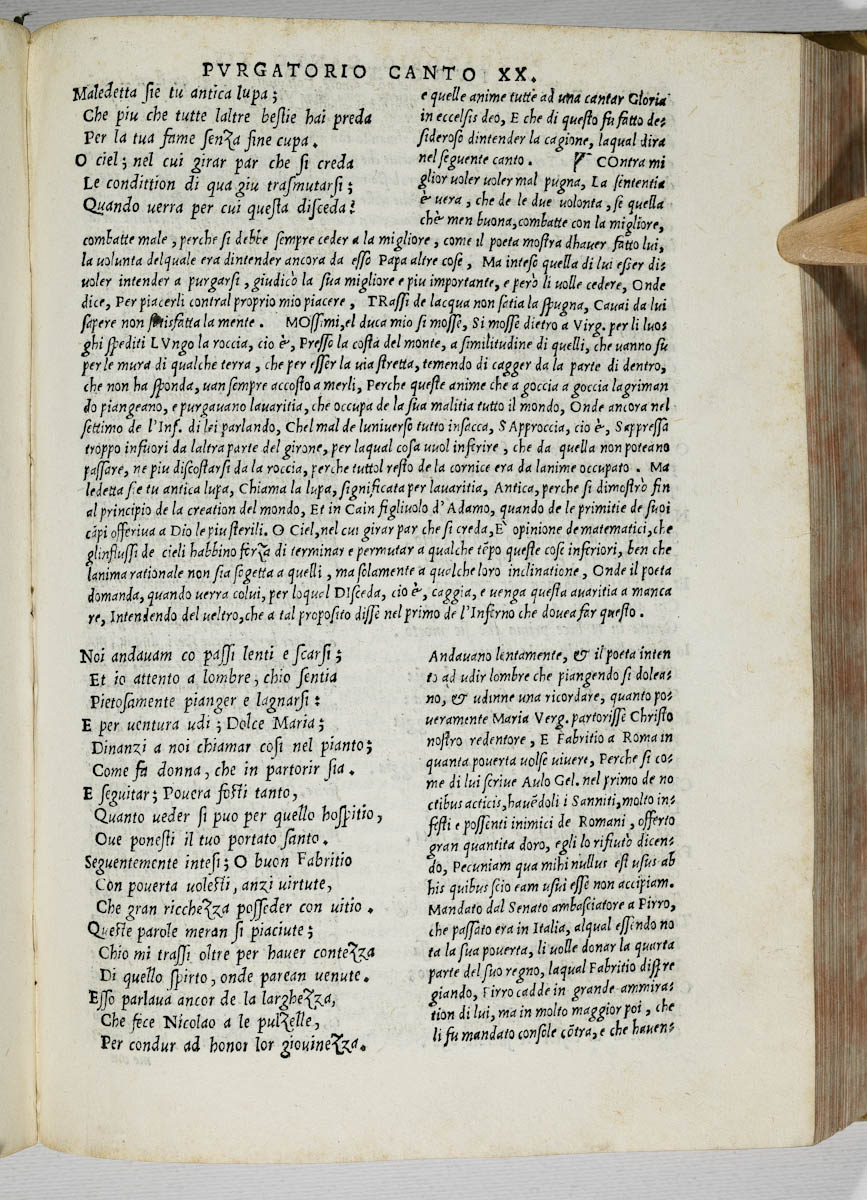 PVRGATORIO CANTO XX.
Maledetta sie tu antica lupa;
Che piu che tutte laltre bestie hai preda
Per la tua fame senza fine cupa.
O ciel; nel cui girar par che si creda
Le condittion di qua giu trasmutarsi;
Quando uerra per cui questa disceda?
e quelle anime tutte ad una cantar Gloria
in eccelsis deo, E che di questo fu fatto de-
sideroso dintender la cagione, laqual dira
nel seguente canto. COntra mi
glior uoler uoler mal pugna, La sintentia
è uera, che de le due uolonta, se quella
chè men buona, combatte con la migliore,
combatte male, perche si debbe sempre ceder a la migliore, come il poeta mostra dhauer fatto lui,
la uolunta delquale era dintender ancora da esso Papa altre cose, Ma inteso quella di lui esser di-
uoler intender a purgarsi, giudicò la sua migliore e piu importante, e però li uolle cedere, Onde
dice, Per piacerli contral proprio mio piacere, TRassi de lacqua non satia la spugna, Cauai da lui
sapere non satisfatta la mente. MOssimi, el duca mio si mosse, Si mosse dietro a Virg. per li luo-
ghi spediti LVngo la roccia, cio è, Presso la costa del monte, a similitudine di quelli, che uanno su
per le mura di qualche terra, che per esser la uia stretta, temendo di cagger da la parte di dentro,
che non ha sponda, uan sempre accosto a merli, Perche queste anime che a goccia a goccia lagriman
do piangeano, e purgauano lauaritia, che occupa de la sua malitia tutto il mondo, Onde ancora nel
settimo de l'Inf. di lei parlando, Chel mal de luniuerso tutto insacca, SApproccia, cio è, Sappressa
troppo infuori da laltra parte del girone, per laqual cosa uuol inferire, che da quella non poteano
passare, ne piu discostarsi da la roccia, perche tuttol resto de la cornice era da lanime occupato. Ma
ledetta sie tu antica lupa, Chiama la lupa, significata per lauaritia, Antica, perche si dimostrò fin
al principio de la creation del mondo, Et in Cain figliuolo d'Adamo, quando de le primitie de suoi
cãpi offeriua a Dio le piu sterili. O Ciel, nel cui girar par che si creda, È opinione de matematici, che
glinflussi de cieli habbino forza di terminar e permutar a qualche tẽpo queste cose inferiori, ben che
lanima rationale non sia sogetta a quelli, ma solamente a qualche loro inclinatione, Onde il poeta
domanda, quando uerra colui, per loquel DIsceda, cio è, caggia, e uenga questa auaritia a manca
re, Intendendo del ueltro, che a tal proposito disse nel primo de l'Inferno che douea far questo.
Noi andauam co passi lenti e scarsi;
Et io attento a lombre, chio sentia
Pietosamente pianger e lagnarsi:
E per uentura udi; Dolce Maria;
Dinanzi a noi chiamar cosi nel pianto;
Come fa donna, che in partorir sia.
E seguitar; Pouera fosti tanto,
Quanto ueder si puo per quello hospitio,
Oue ponesti il tuo portato santo.
Seguentemente intesi; O buon Fabritio
Con pouerta uolesti, anzi uirtute,
Che gran ricchezza posseder con uitio.
Queste parole meran si piaciute;
Chio mi trassi oltre per hauer contezza
Di quello spirto, onde parean uenute.
Esso parlaua ancor de la larghezza,
Che fece Nicolao a le pulzelle,
Per condur ad honor lor giouinezza.
Andauano lentamente, & il poeta inten
to ad udir lombre che piangendo si dolea-
no, & udinne una ricordare, quanto po-
ueramente Maria Verg. partorisse Christo
nostro redentore, E Fabritio a Roma in
quanta pouerta uolse uiuere, Perche si co-
me di lui scriue Aulo Gel. nel primo de no
ctibus acticis, hauẽdoli i Sanniti, molto in-
festi e possenti inimici de Romani, offerto
gran quantita doro, egli lo rifiutò dicen-
do, Pecuniam qua mihi nullus est usus ab
his quibus scio eam usui esse non accipiam.
Mandato dal Senato ambasciatore a Pirro,
che passato era in Italia, alqual essendo no
ta la sua pouerta, li uolle donar la quarta
parte del suo regno, laqual Fabritio dispre
giando, Pirro cadde in grande ammira-
tion di lui, ma in molto maggior poi, che
li fu mandato console cõtra, e che hauen-